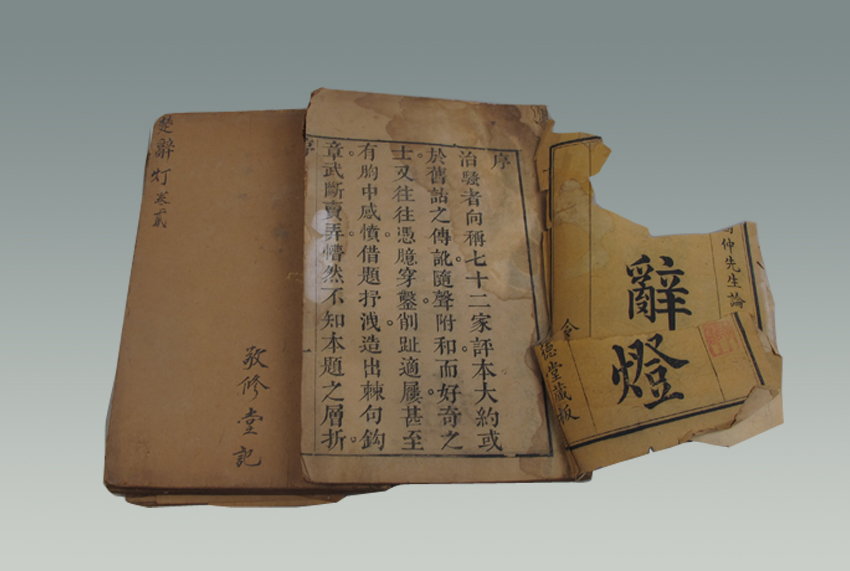 楚辭灯 卷貳
敬修堂記
序
治騷者向稱七十二家評本大約或
於舊詁之傳訛隨聲附和而好奇之
士又往往憑臆穿鑿削趾適屨甚至
有胸中感憤借題抒洩造出棘句鈎
章武斷賣弄懵然不知本題之層折
仲先生論
辭燈
德堂藏板